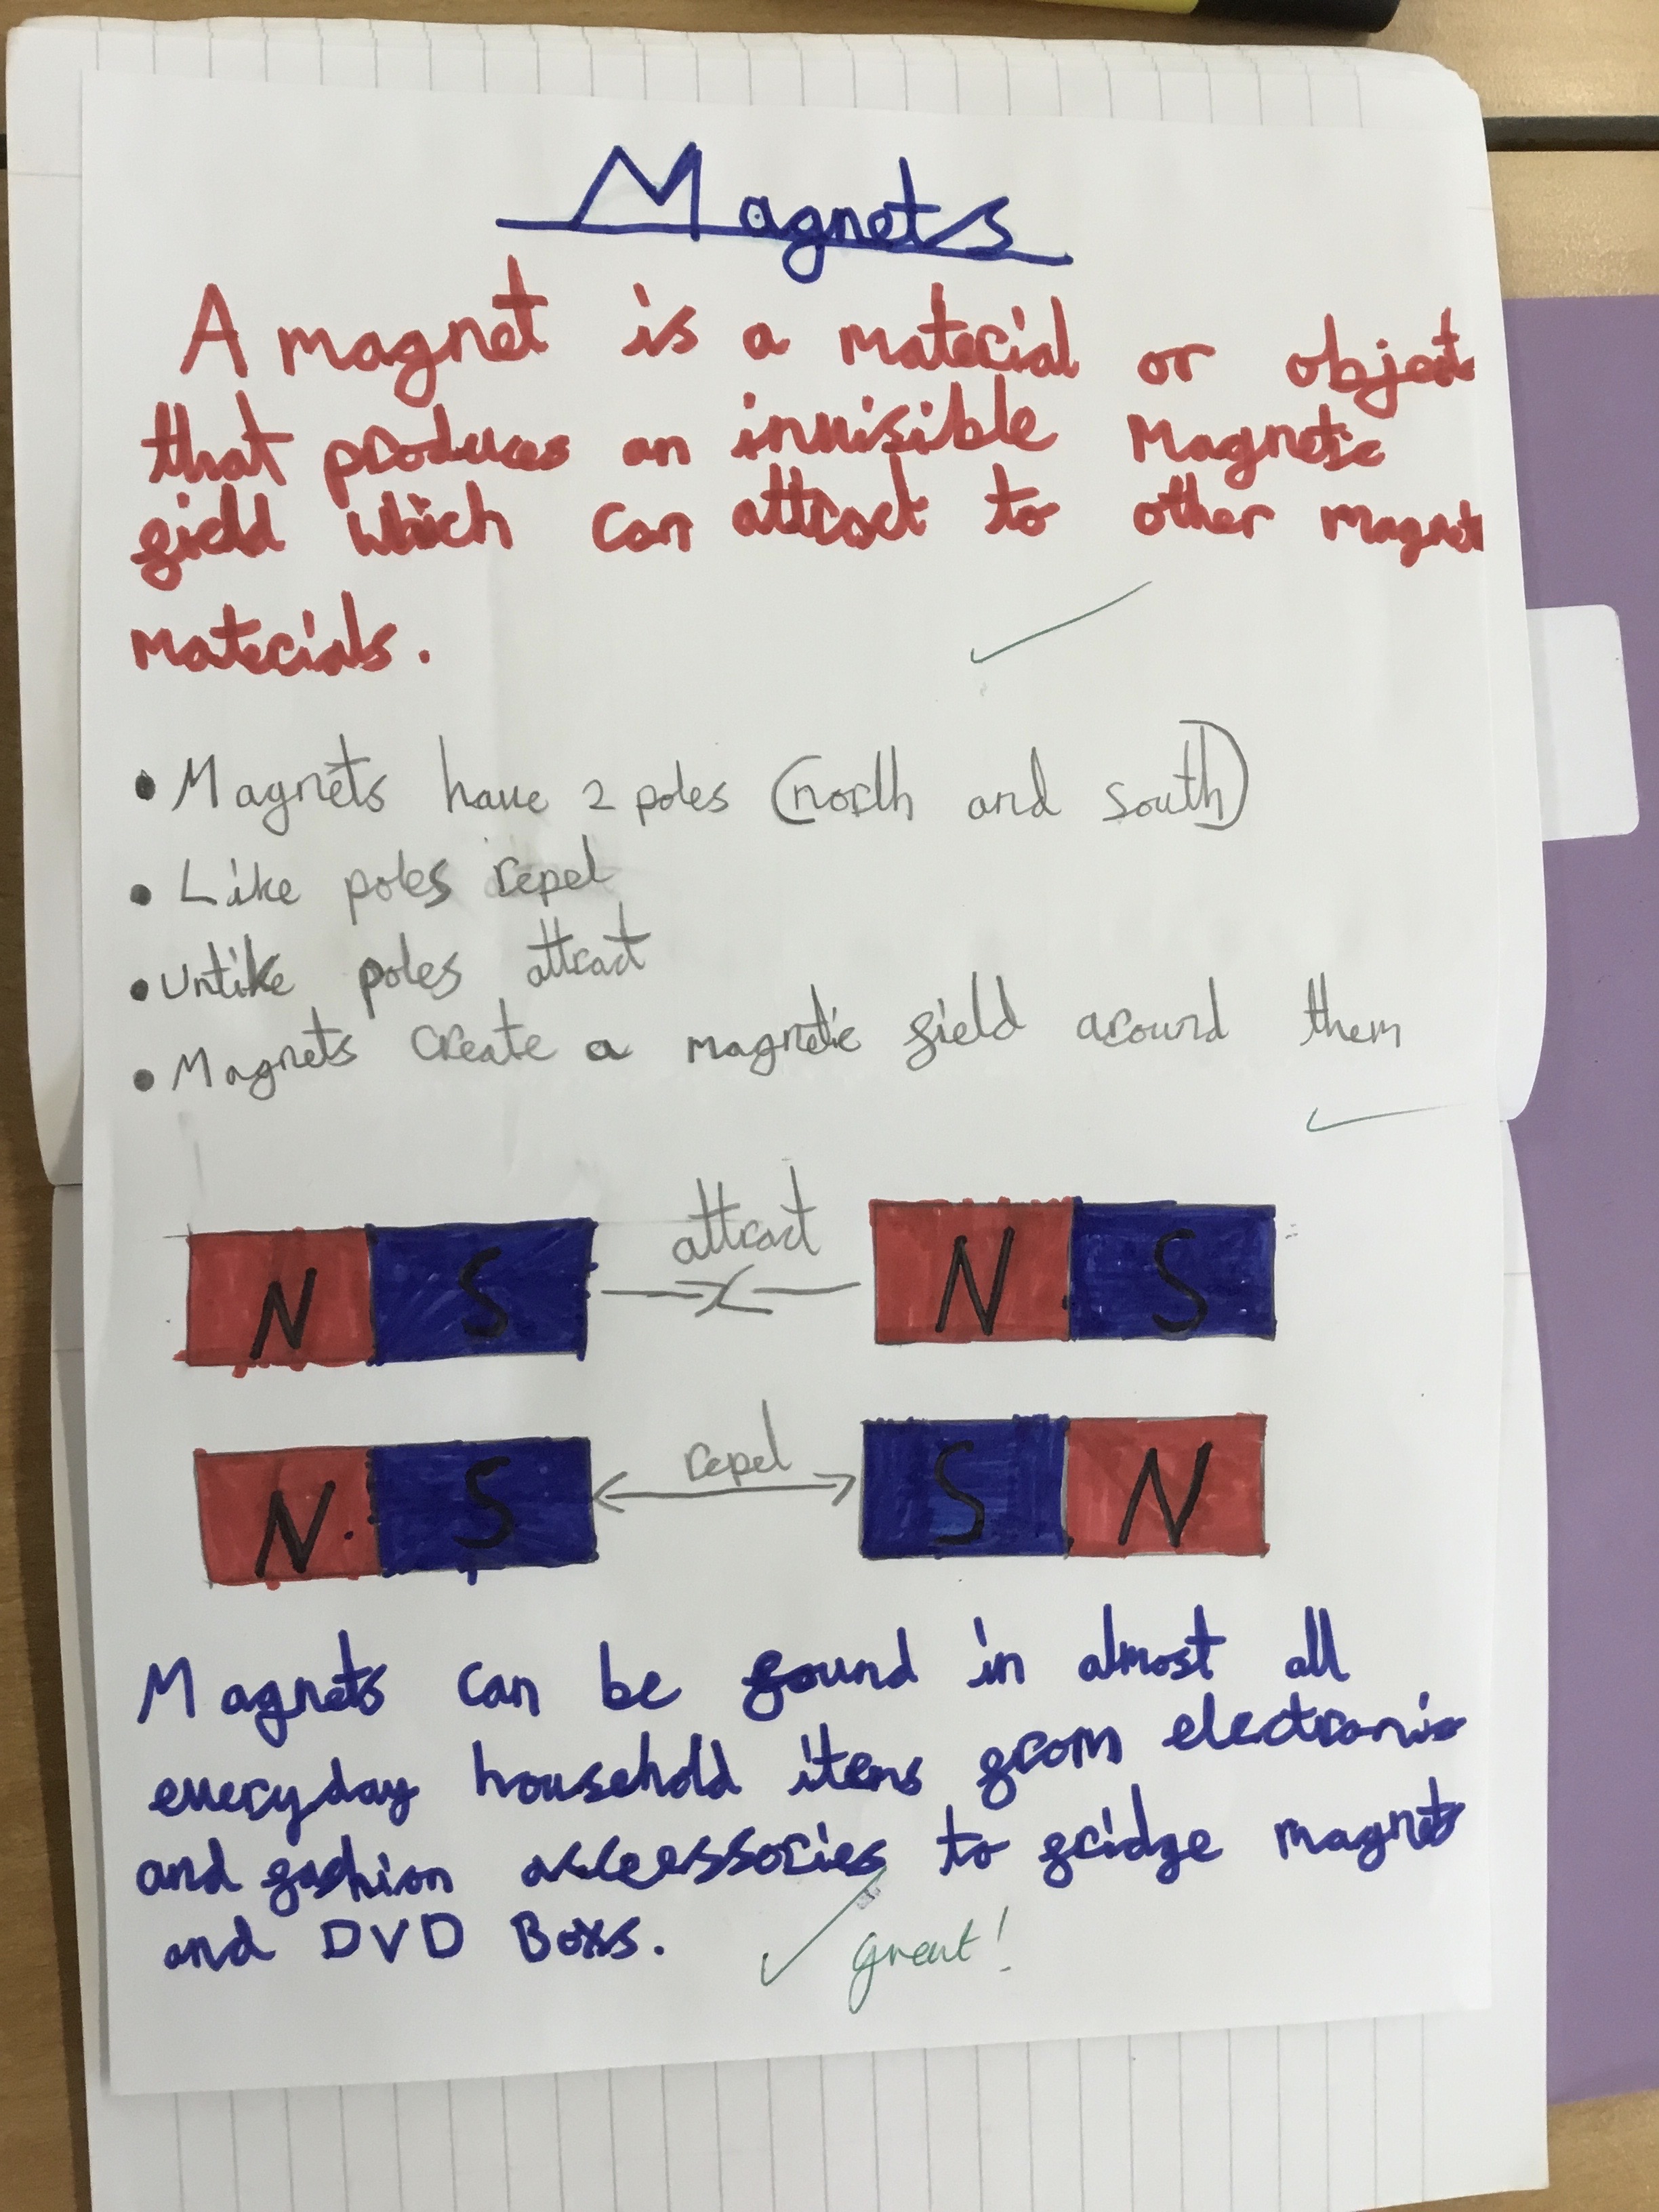 Magnets
A magnet is a material or object
that produces an invisible Magnetic
field which can attract to other magnet
materials.
• Magnets have 2 poles (north and south)
• Like poles repel
• Unlike poles attract
• Magnets create a magnetic field around them
attract
N S N S
repel
N S S N
Magnets can be found in almost all
everyday household items from electronic
and fashion acceessories to fridge magnets
and DVD Boxs.
great!